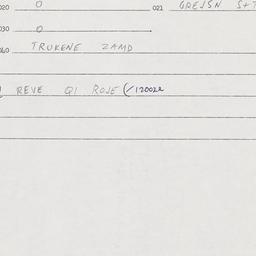 020 0 021 GREJSN S+T
030 0
060 TRUKENE ZAMD
REVE QI ROJE